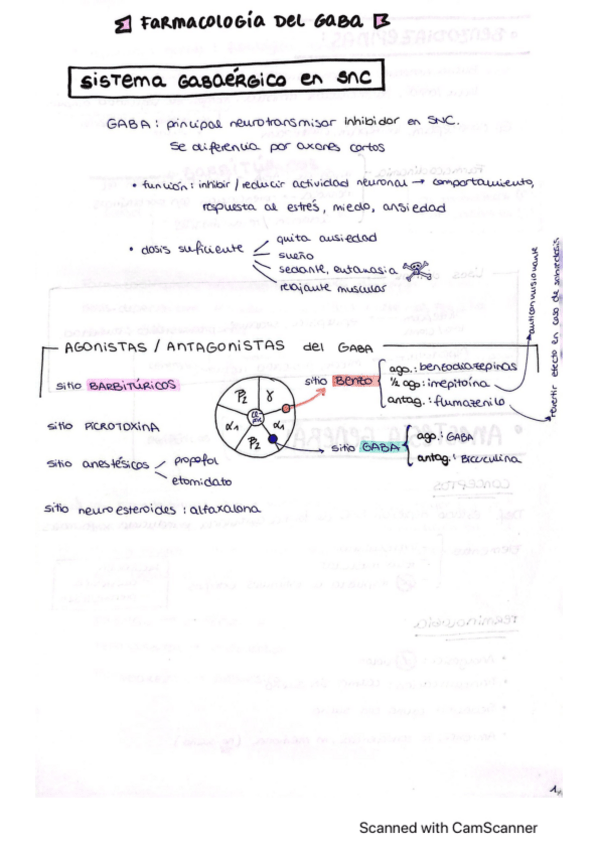 FARMACOLOGÍA DEL GABA
SISTEMA GABAÉRGICO en SNC
GABA: principal neurotransmisor inhibidor en SNC.
Se diferencia por axones cortos
• función: inhibir/reducir actividad neuronal → comportamiento,
respuesta al estrés, miedo, ansiedad
• dosis suficiente
quita ansiedad
sueño
sedante, eutanasia
relajante muscular
AGONISTAS / ANTAGONISTAS del GABA
sitio BARBITÚRICOS
sitio PICROTOXINA
sitio anestésicos
propofol
etomidato
sitio neuroesteroides: alfaxalona
β2
γ
α1
α1
β2
sitio BENZO
ago.: benzodiazepinas
½ ago: imepitoína
antag.: flumazenilo
anticonvulsionante
revertir efecto en caso de sobredosis
sitio GABA
ago.: GABA
antag.: Bicuculina
1
Scanned with CamScanner